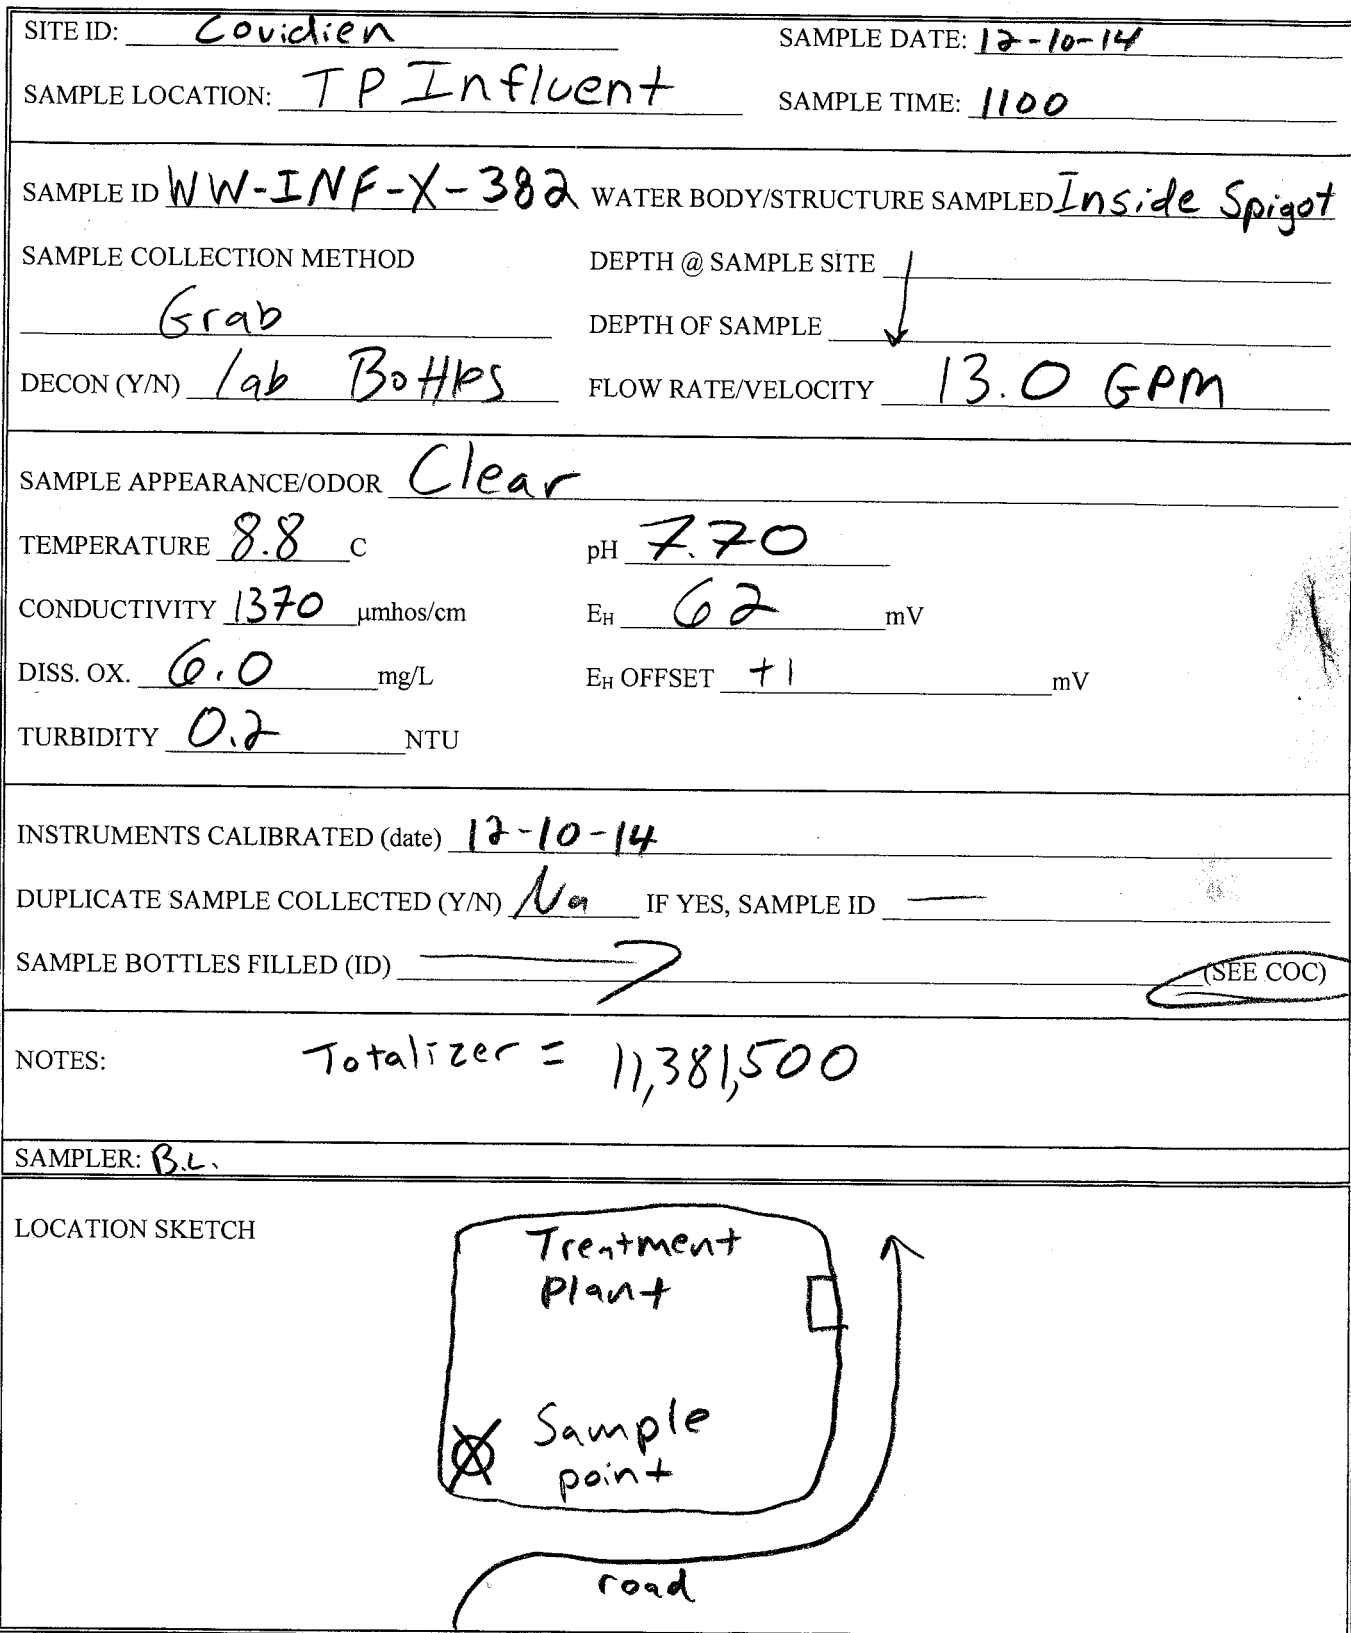 SITE ID: Covidien SAMPLE DATE: 12-10-14
SAMPLE LOCATION: TP Influent SAMPLE TIME: 1100
SAMPLE ID WW-INF-X-382 WATER BODY/STRUCTURE SAMPLED Inside Spigot
SAMPLE COLLECTION METHOD DEPTH @ SAMPLE SITE
Grab DEPTH OF SAMPLE
DECON (Y/N) lab Bottles FLOW RATE/VELOCITY 13.0 GPM
SAMPLE APPEARANCE/ODOR Clear
TEMPERATURE 8.8 C pH 7.70
CONDUCTIVITY 1370 µmhos/cm EH 62 mV
DISS. OX. 6.0 mg/L EH OFFSET +1 mV
TURBIDITY 0.2 NTU
INSTRUMENTS CALIBRATED (date) 12-10-14
DUPLICATE SAMPLE COLLECTED (Y/N) No IF YES, SAMPLE ID —
SAMPLE BOTTLES FILLED (ID) (SEE COC)
NOTES: Totalizer = 11,381,500
SAMPLER: B.L.
LOCATION SKETCH
Treatment
Plant
Sample
point
road